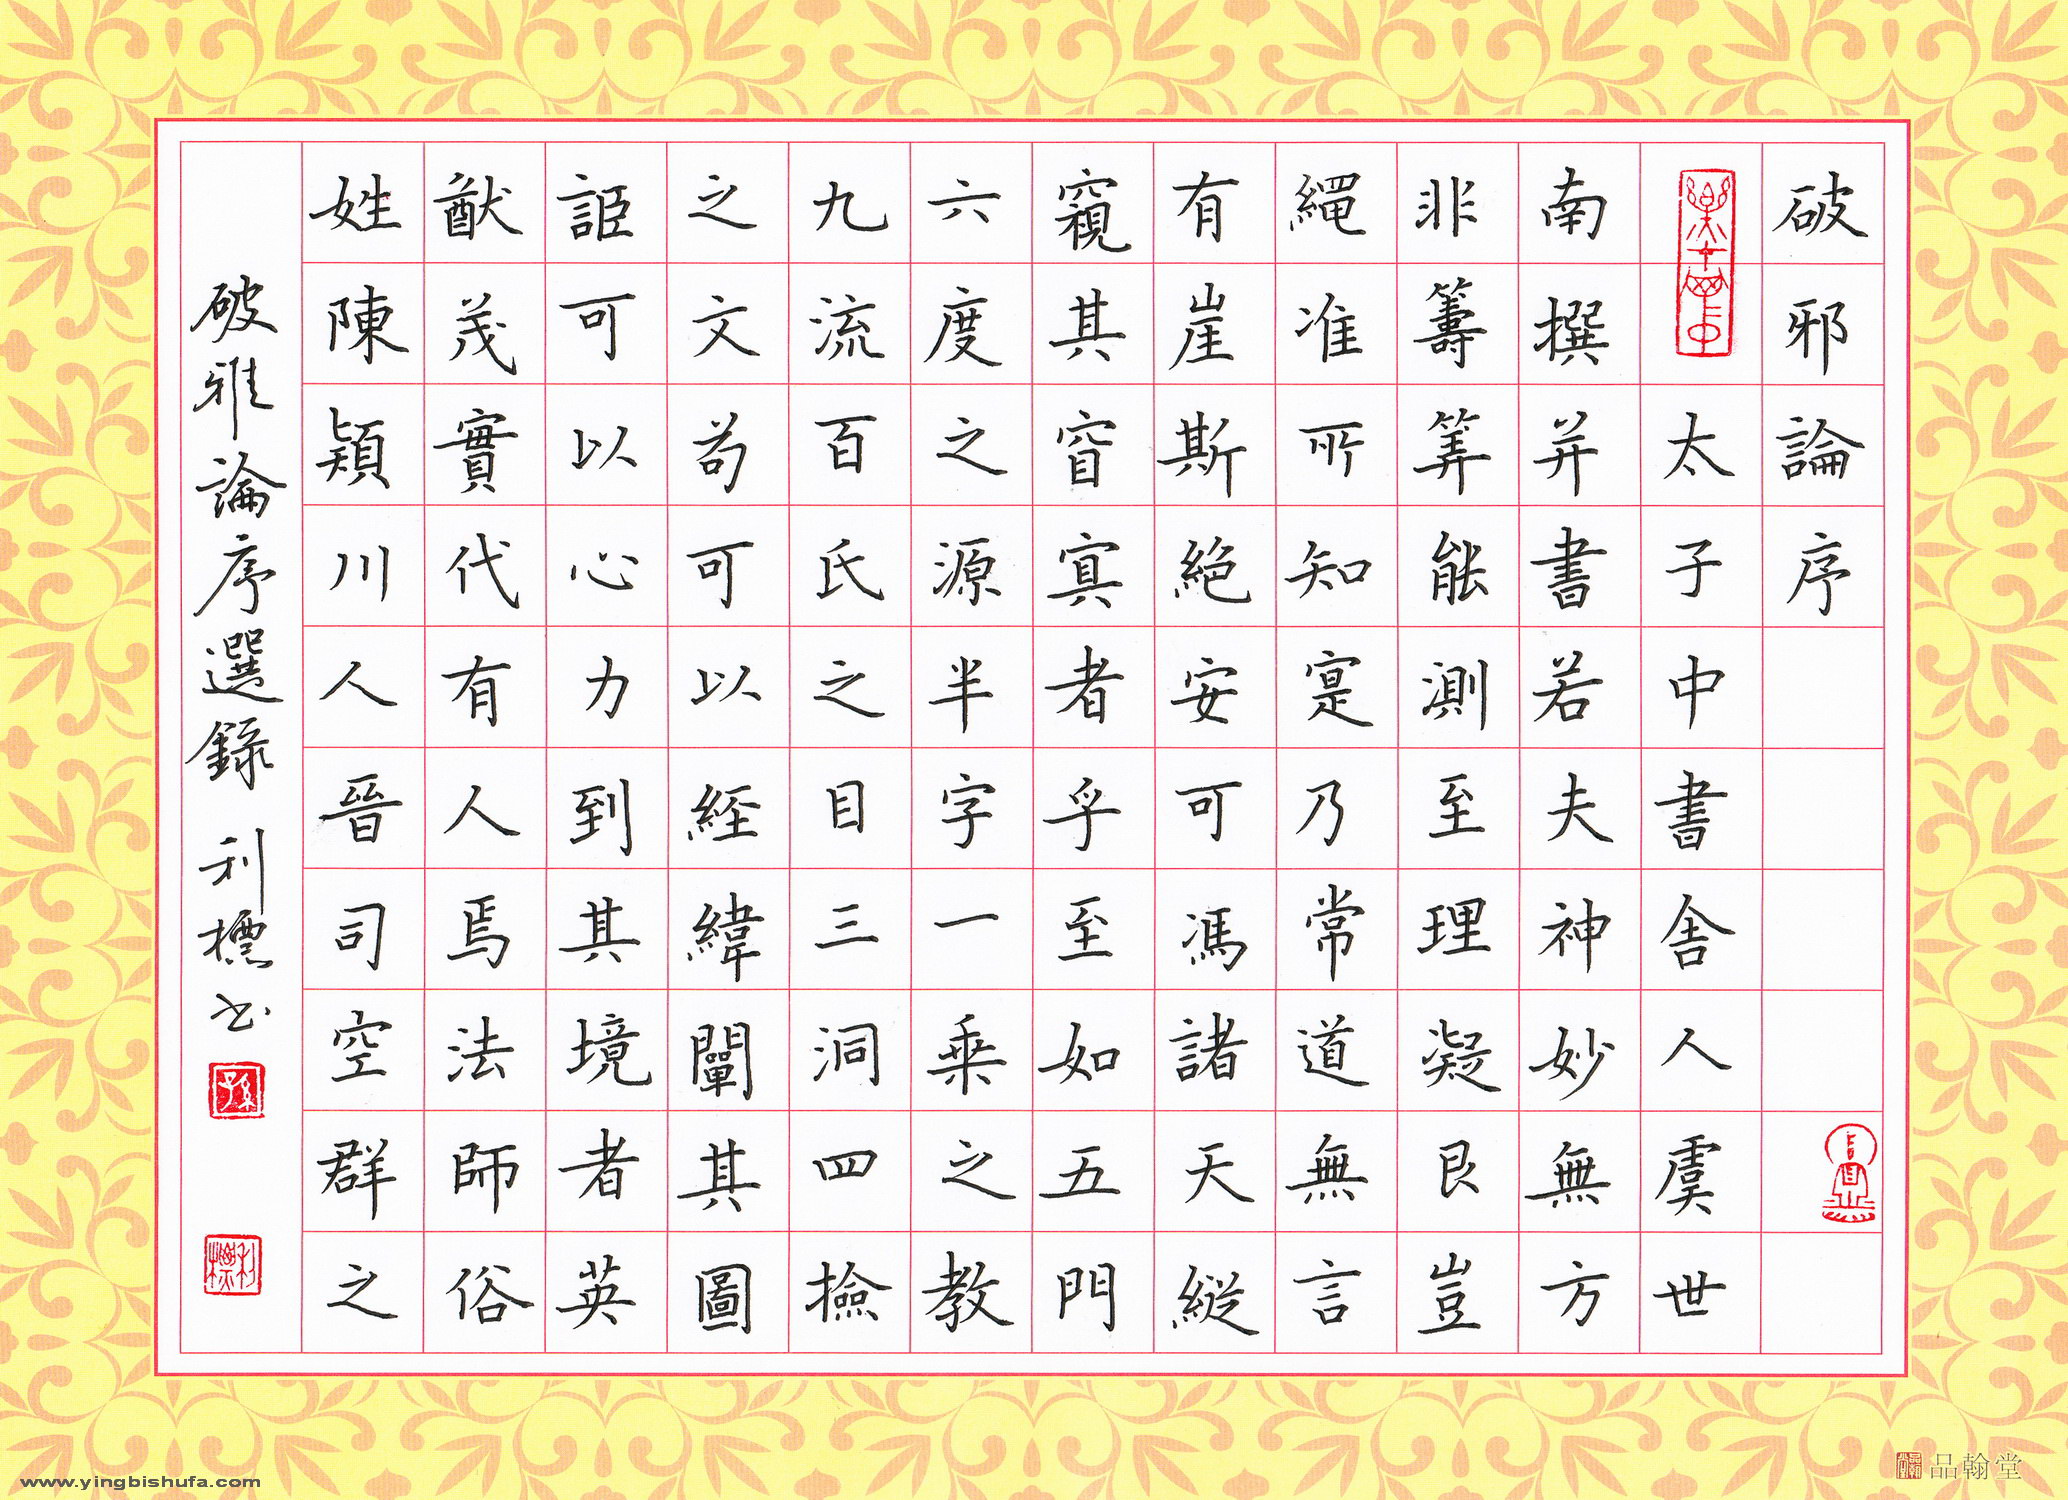 破邪論序
太子中書舎人虞世
南撰并書若夫神妙無方
非籌筭能測至理凝㫐豈
繩准所知寔乃常道無言
有崖斯絶安可馮諸天縱
窺其窅寘者乎至如五門
六度之源半字一乗之教
九流百氏之目三洞四撿
之文苟可以經緯闡其圖
詎可以心力到其境者英
猷茂實代有人焉法師俗
姓陳潁川人晉司空群之
破雅論序選錄 利標书
孫
利標
品翰堂
www.yingbishufa.com